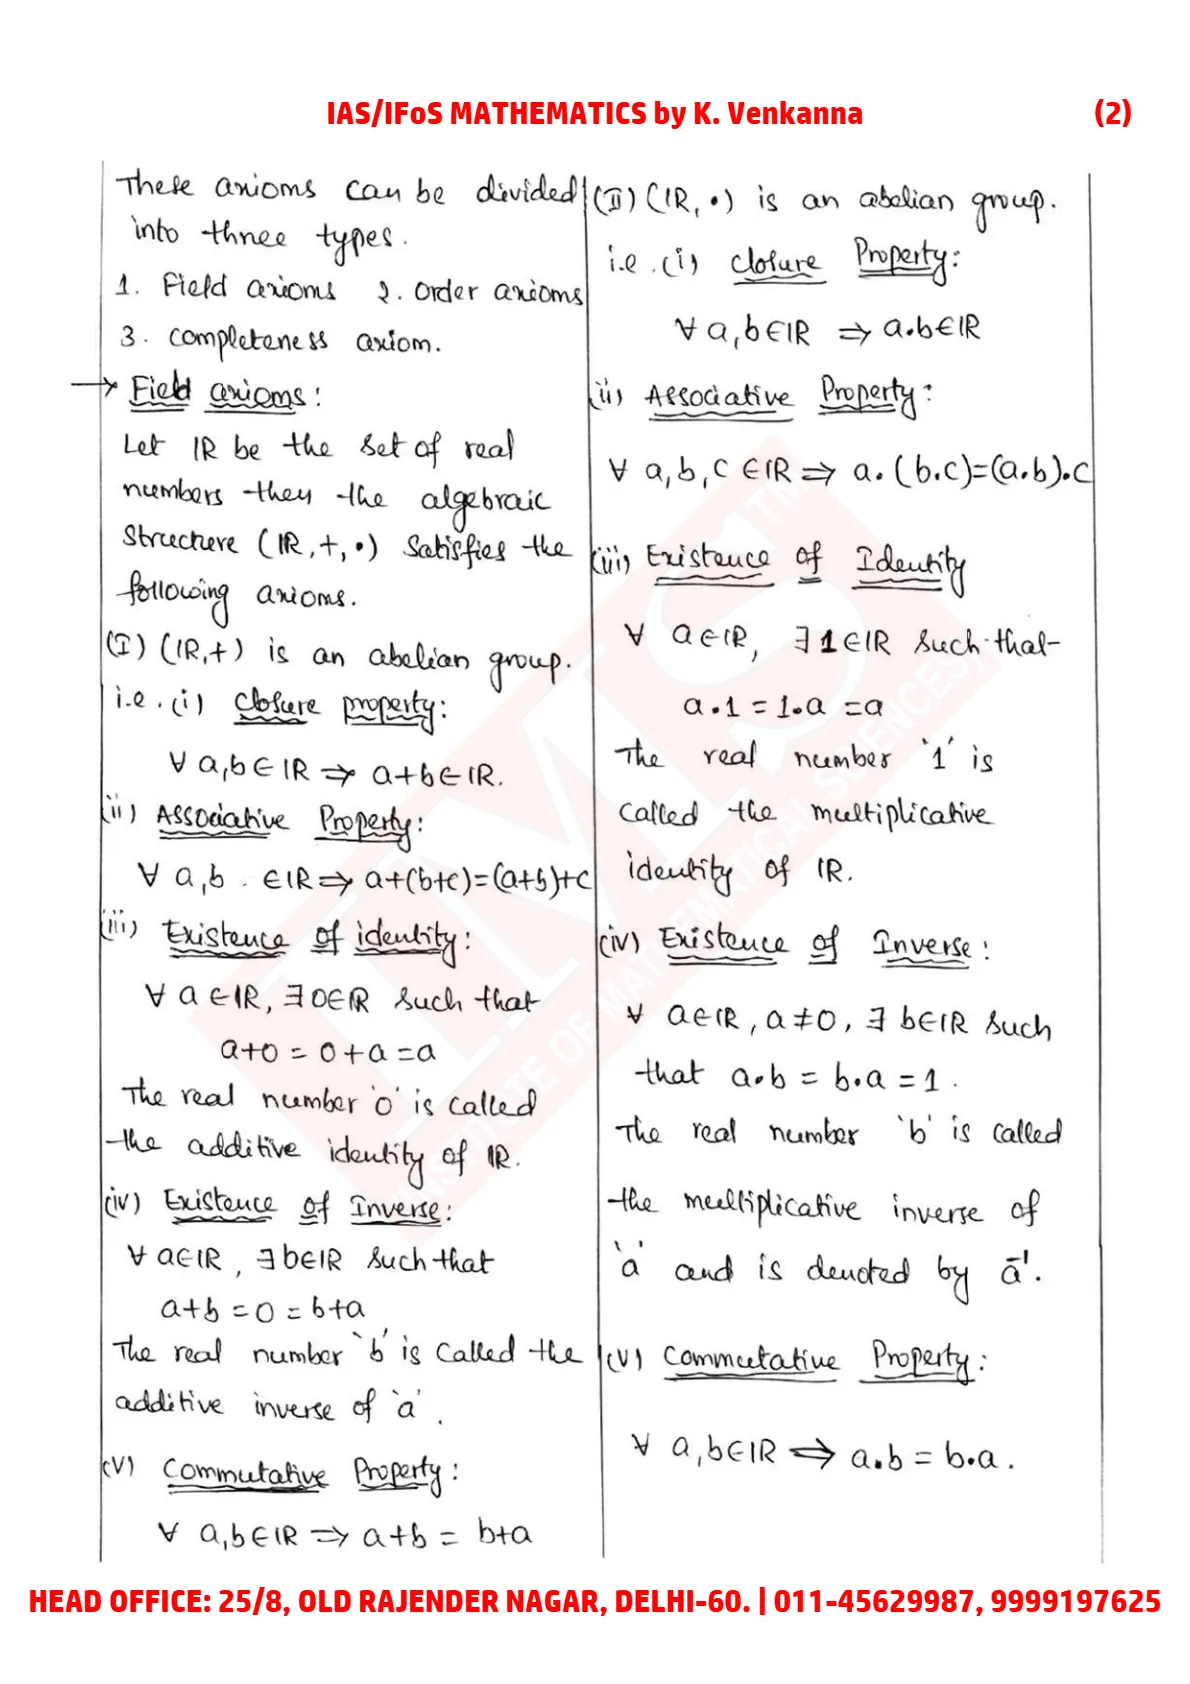 IAS/IFoS MATHEMATICS by K. Venkanna (2)
These axioms can be divided
into three types.
1. Field axioms 2. Order axioms
3. Completeness axiom.
→ Field axioms:
Let IR be the set of real
numbers then the algebraic
Structure (IR, +, •) Satisfies the
following axioms.
(I) (IR,+) is an abelian group.
i.e. (i) Closure property:
∀ a,b∈IR ⇒ a+b∈IR.
(ii) Associative Property:
∀ a,b ∈IR ⇒ a+(b+c)=(a+b)+c
(iii) Existence of identity:
∀ a∈IR, ∃ 0∈IR such that
a+0 = 0+a = a
The real number '0' is called
the additive identity of IR.
(iv) Existence of Inverse:
∀ a∈IR, ∃ b∈IR such that
a+b = 0 = b+a
The real number `b' is called the
additive inverse of `a'.
(v) Commutative Property:
∀ a,b∈IR ⇒ a+b = b+a
(II) (IR, •) is an abelian group.
i.e. (i) Closure Property:
∀ a,b∈IR ⇒ a•b∈IR
(ii) Associative Property:
∀ a,b,c ∈IR ⇒ a•(b•c)=(a•b)•c
(iii) Existence of Identity
∀ a∈IR, ∃ 1∈IR such that
a•1 = 1•a = a
The real number `1' is
called the multiplicative
identity of IR.
(iv) Existence of Inverse:
∀ a∈IR, a≠0, ∃ b∈IR such
that a•b = b•a = 1.
The real number `b' is called
the multiplicative inverse of
`a' and is denoted by a⁻¹.
(v) Commutative Property:
∀ a,b∈IR ⇒ a•b = b•a.
IMS TM
INSTITUTE OF MATHEMATICAL SCIENCES
HEAD OFFICE: 25/8, OLD RAJENDER NAGAR, DELHI-60. | 011-45629987, 9999197625